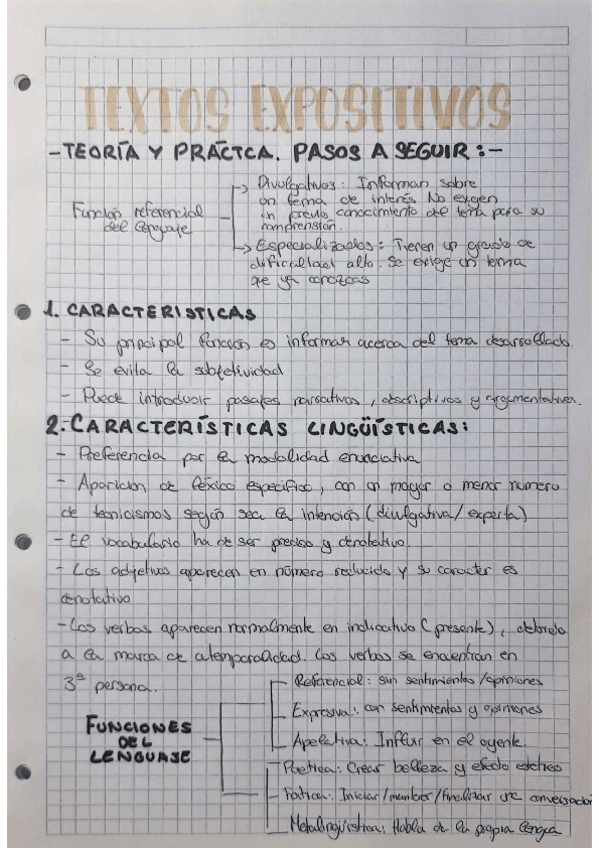 TEXTOS EXPOSITIVOS
-TEORÍA Y PRÁCTCA. PASOS A SEGUIR:-
Función referencial del lenguaje
Divulgativos: Informan sobre
un tema de interés No exigen
un previo conocimiento del tema para su
comprensión.
Especializados: Tienen un grado de
dificultad alto. Se exige un tema
que ya conozcas
1. CARACTERISTICAS
- Su principal función es informar acerca del tema desarrollado.
- Se evita la subjetividad
- Puede introducir pasajes narrativos, descriptivos y argumentativos.
2.-CARACTERÍSTICAS LINGÜÍSTICAS:
- Preferencia por la modalidad enunciativa
- Aparición de léxico específico, con un mayor o menor número
de tecnicismos según sea la intención (divulgativa/experta)
- El vocabulario ha de ser preciso y denotativo.
- Los adjetivos aparecen en número reducido y su caracter es
denotativo
- Los verbos aparecen normalmente en indicativo (presente), debido
a la marca de atemporalidad. Los verbos se encuentran en
3ª persona.
FUNCIONES
DEL
LENGUAJE
Referencial: sin sentimientos/opiniones
Expresiva: con sentimientos y opiniones
Apelativa: Influir en el oyente.
Poetica: Crear belleza y efecto estético
Fática: Iniciar/mantener/finalizar una conversación
Metalingüística: Habla de la propia lengua